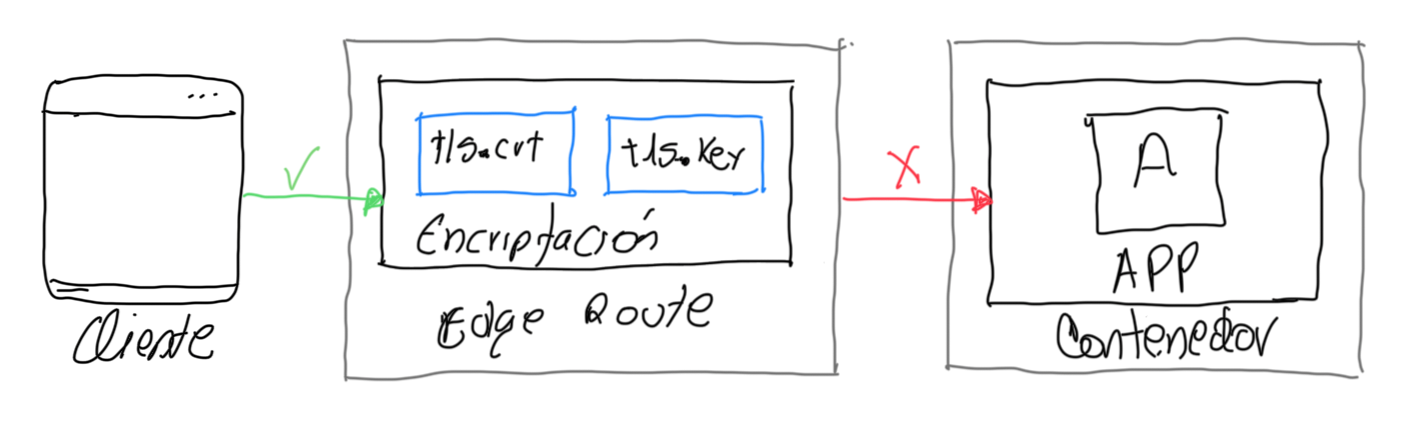 Cliente
tls.crt
tls.key
Encriptación
Edge Route
X
A
APP
Contenedor